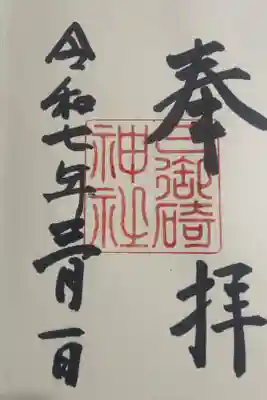 奉拝
日御碕
神社
令和七年十二月一日